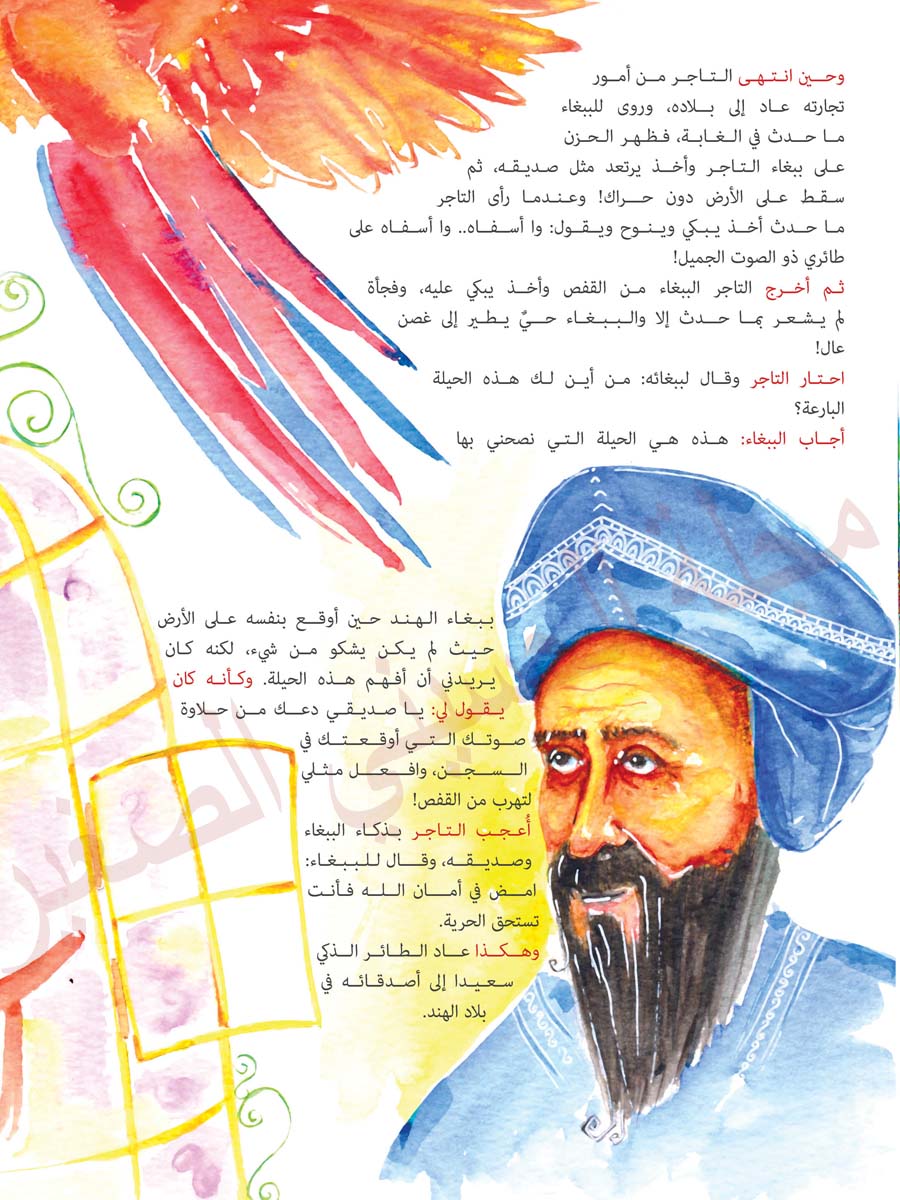 وحين انتهى التاجر من أمور
تجارته عاد إلى بلاده، وروى للببغاء
ما حدث في الغابة، فظهر الحزن
على ببغاء التاجر وأخذ يرتعد مثل صديقه، ثم
سقط على الأرض دون حراك! وعندما رأى التاجر
ما حدث أخذ يبكي وينوح ويقول: وا أسفاه.. وا أسفاه على
طائري ذو الصوت الجميل!
ثم أخرج التاجر الببغاء من القفص وأخذ يبكي عليه، وفجأة
لم يشعر بما حدث إلا والببغاء حيٌ يطير إلى غصن
عال!
احتار التاجر وقال لببغائه: من أين لك هذه الحيلة
البارعة؟
أجاب الببغاء: هذه هي الحيلة التي نصحني بها
ببغاء الهند حين أوقع بنفسه على الأرض
حيث لم يكن يشكو من شيء، لكنه كان
يريدني أن أفهم هذه الحيلة. وكأنه كان
يقول لي: يا صديقي دعك من حلاوة
صوتك التي أوقعتك في
السجن، وافعل مثلي
لتهرب من القفص!
أُعجب التاجر بذكاء الببغاء
وصديقه، وقال للببغاء:
امض في أمان الله فأنت
تستحق الحرية.
وهكذا عاد الطائر الذكي
سعيدا إلى أصدقائه في
بلاد الهند.